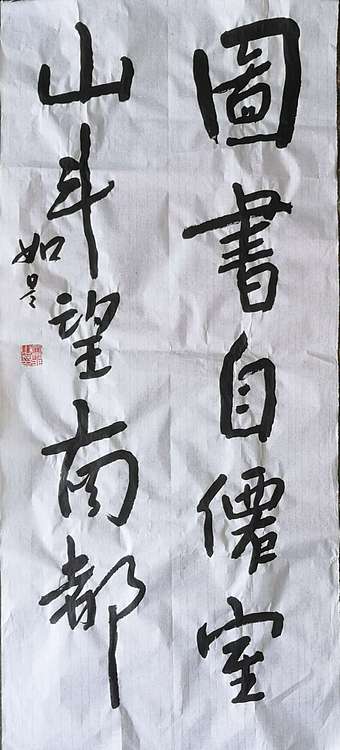 圖書自僊室
山斗望南都
如